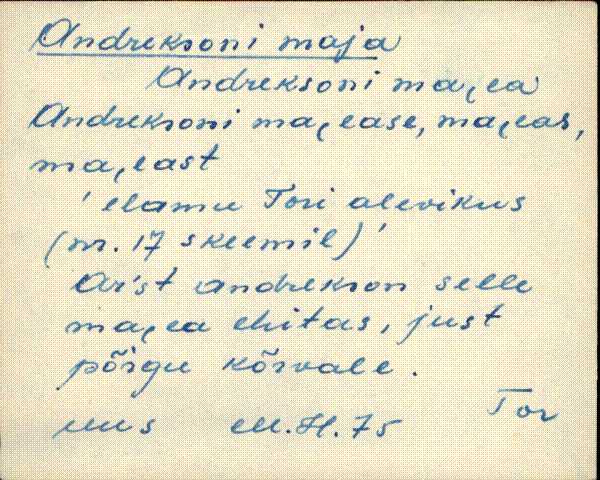 Andreksoni maja
Andreksoni ma,ea
Andreksoni ma,ease, ma,eas,
ma,east
'elamu Tori alevikus
(nr. 17 skeemil)'
Ar'st Andrekson selle
ma,ea ehitas, just
põrgu kõrvale.
Tor
uus M.H. 75